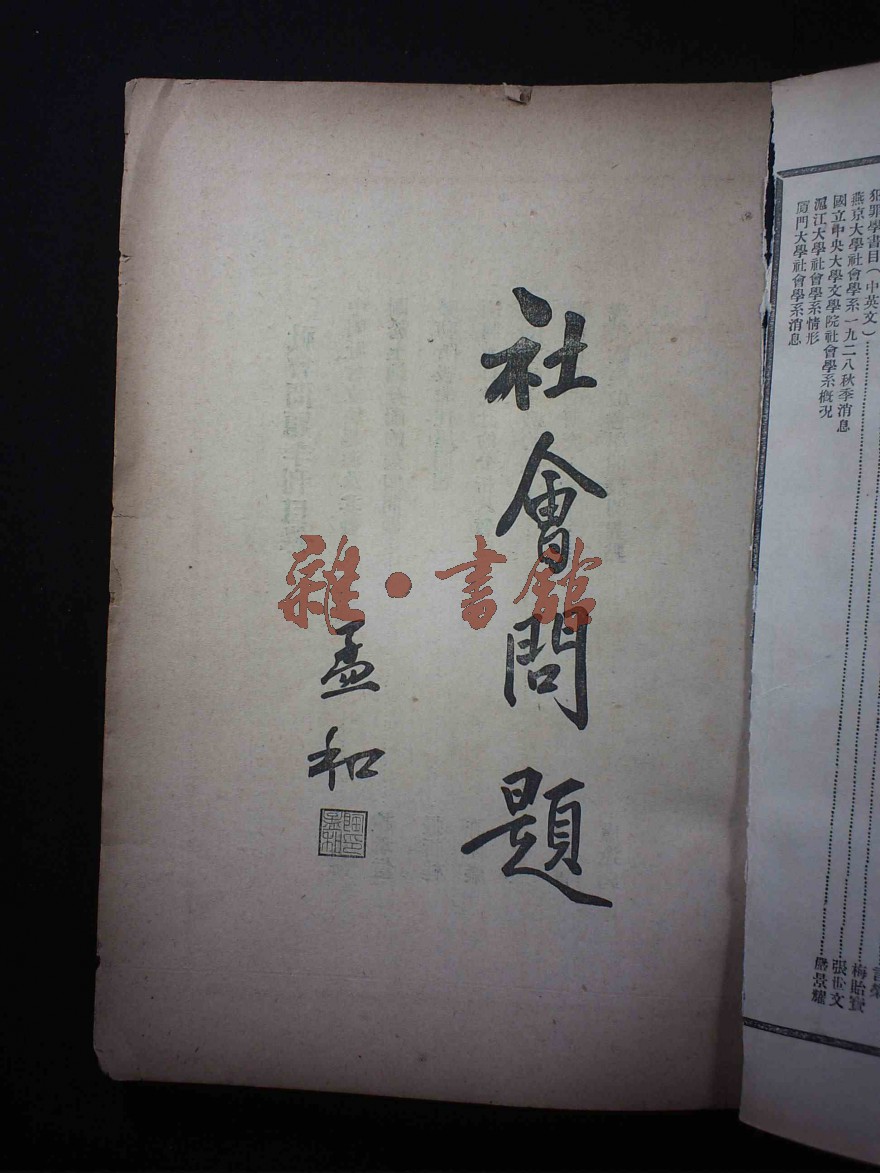 社會問題
孟和
陶孟和印
雜·書館
犯罪學書目（中英文）
燕京大學社會學系一九二八秋季消息
國立中央大學文學院社會學系概況
滬江大學社會學系情形
厦門大學社會學系消息
言榮
梅貽寶
張世文
嚴景耀